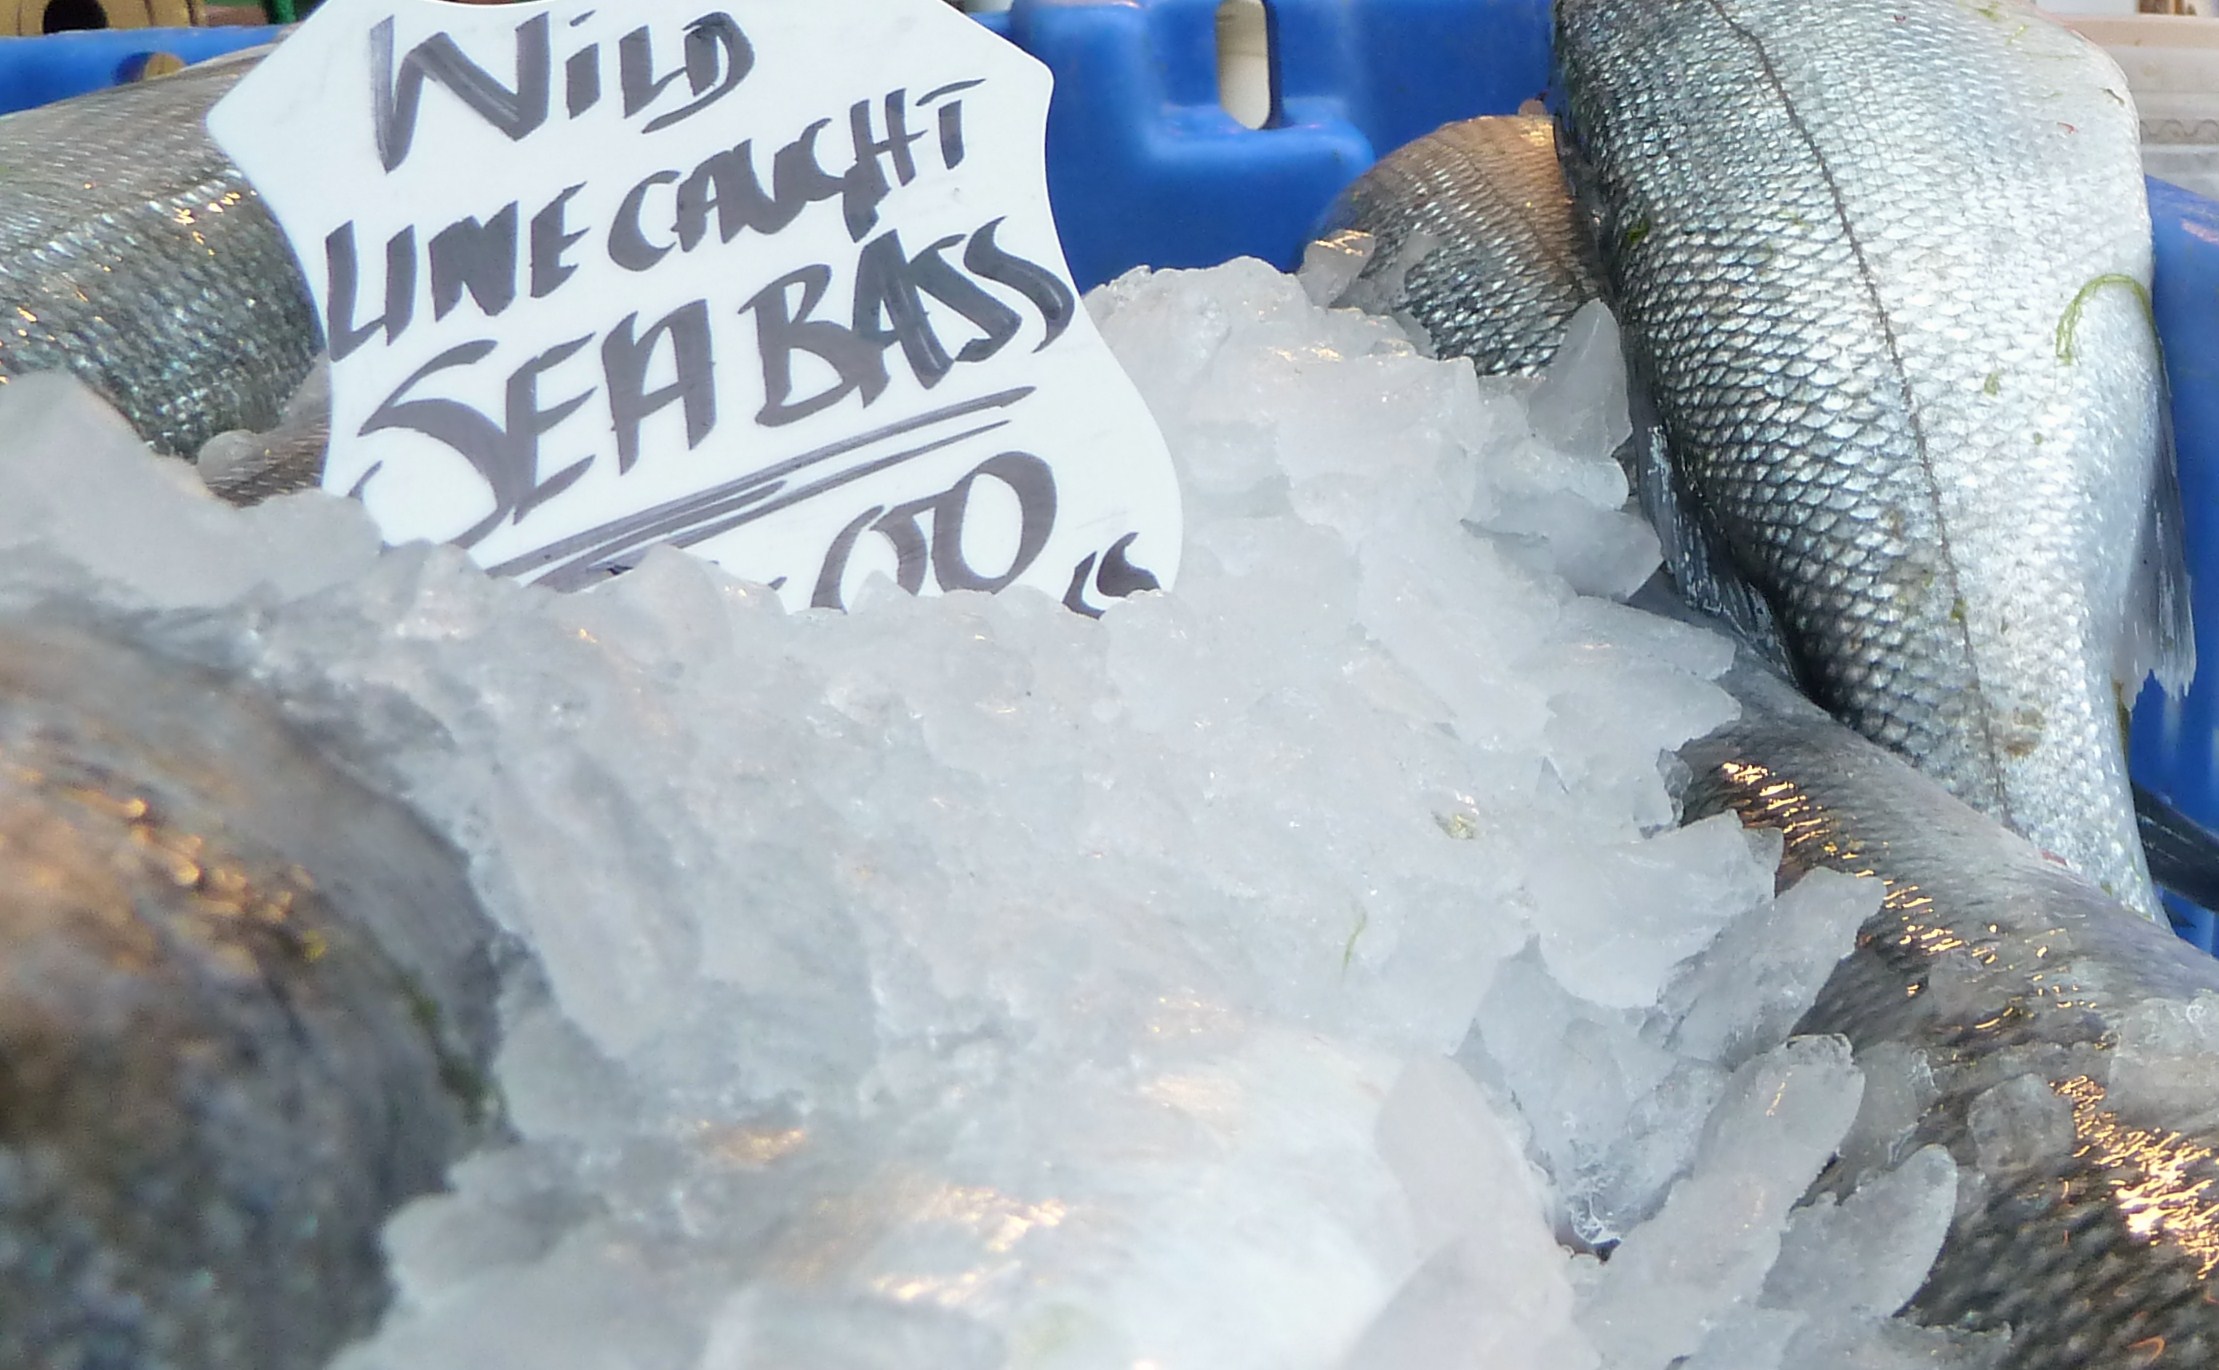 WiLD
LINE CAUGHT
SEA BASS